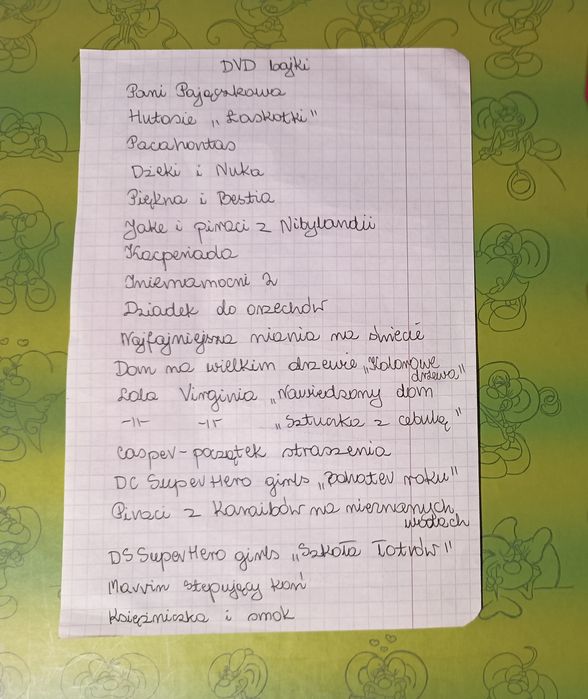 DVD bajki
Pani Pajączkowa
Hutosie „Łaskotki"
Pacahontas
Dżeki i Nuka
Piękna i Bestia
Jake i piraci z Nibylandii
Kacperiada
Iniemamocni 2
Dziadek do orzechów
Najfajniejsza niania na świecie
Dom na wielkim drzewie „Kolorowe
drzewa"
Lola Virginia „Nawiedzony dom
-11- -11- „Sztuczka z cebulą"
Casper - początek straszenia
DC Super Hero girls „Bohater roku"
Piraci z Karaibów na nieznanych
wodach
DS Super Hero girls „Szkoła Łotrów"
Marvin stepujący koń
Księżniczka i smok